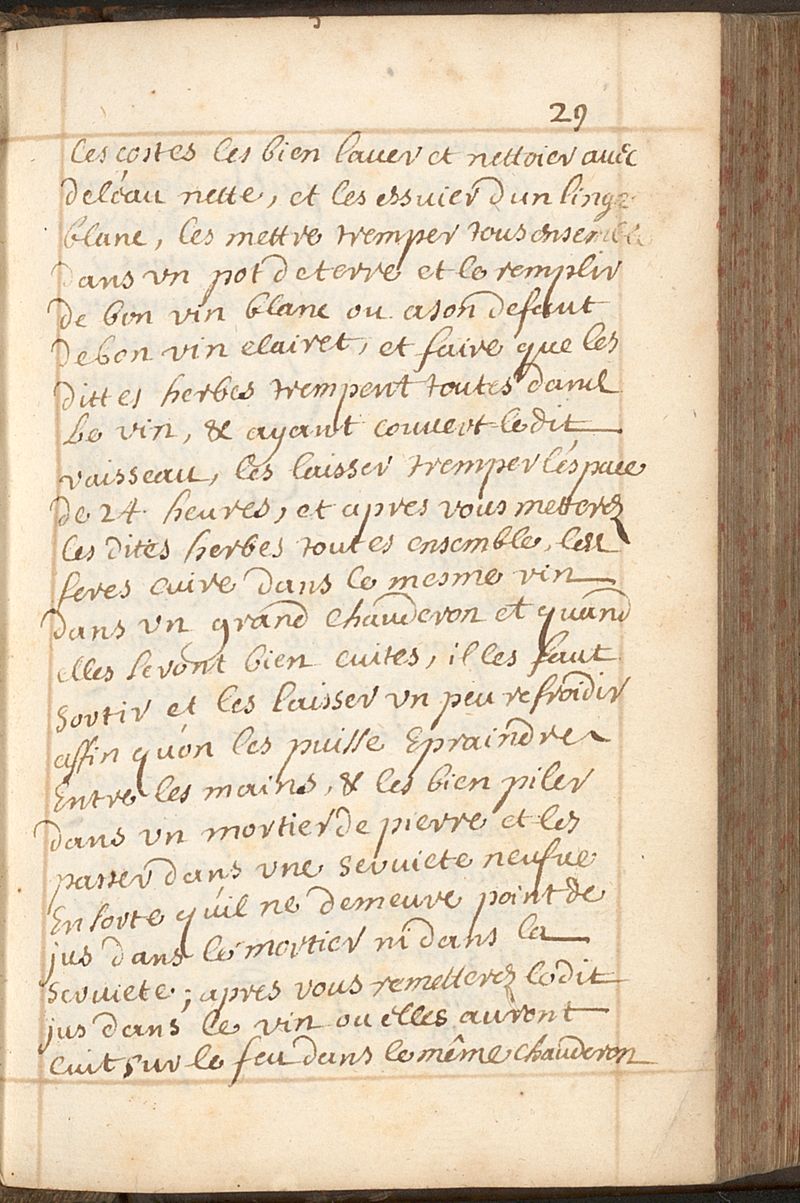 29
les costes les bien lauer et nettoier auec
de léau nette, et les essuier dun linge
blanc, les mettre tremper tous ensemble
dans vn pot de terre et le remplir
de bon vin blanc ou a son defaut
de bon vin clairet, et faire que les
dittes herbes trempent toutes dans
le vin, & ayant couuert ledit
vaisseau, les laisser tremper léspace
de 24 heures, et apres vous metterez
les dites herbes toutes ensemble, les
feres cuire dans le mesme vin
dans vn grand chauderon et quand
elles seront bien cuites, il les faut
sortir et les laisser vn peu refroidir
affin qu'on les puisse Epraindre
Entre les mains, & les bien piler
dans vn mortier de pierre et les
passer dans vne seruiete neufue
Ensorte qu'il ne demeure point de
jus dans le mortier ni dans la
seruiete; apres vous remetterez ledit
jus dans le vin ou elles auront
cuit sur le feu dans le même chauderon